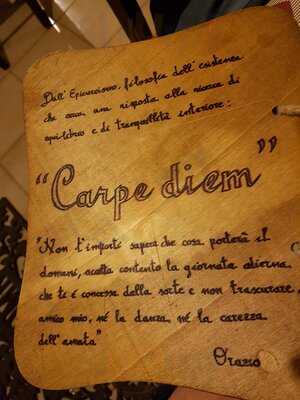 Dall' Epicureismo, filosofia dell' esistenza
che cerca una risposta alla ricerca di
equilibrio e di tranquillità interiore:
"Carpe diem"
"Non t'importi sapere che cosa porterà il
domani, accetta contento la giornata odierna
che ti è concessa dalla sorte e non trascurare,
amico mio, né la danza né la carezza
dell'amata"
Orazio